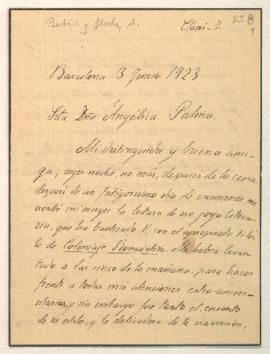 Rubió y Lluch, A.
Clani-7.
Barcelona 3 Junio 1923
Srta Dña Angélica Palma.
Mi distinguida y buena ami-
ga, ayer noche, no más, después de la cena,
después de un fatigosísimo día de exámenes, me
acabó mi mujer la lectura de una joya litera-
ria, que ha bautizado V. con el apropiado títu-
lo de Coloniaje Romántico. Me había levan-
tado a las cinco de la mañana, para hacer
frente a todas mis atenciones extra-univer-
sitarias, y sin embargo fue tanto el encanto
de su estilo, y lo delicadeza de la narración,